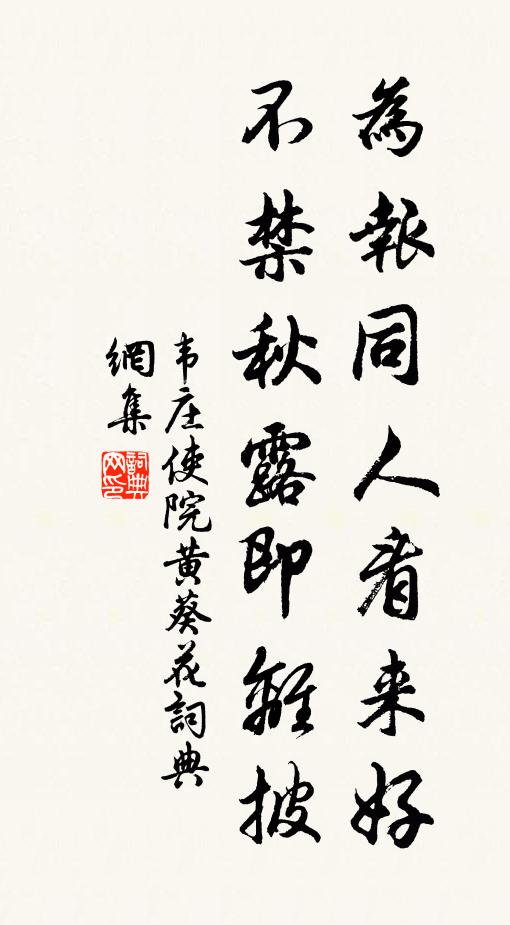 為報同人看来好
不禁秋露即離披
韦庄使院黄葵花詞典
網集
詞典网印